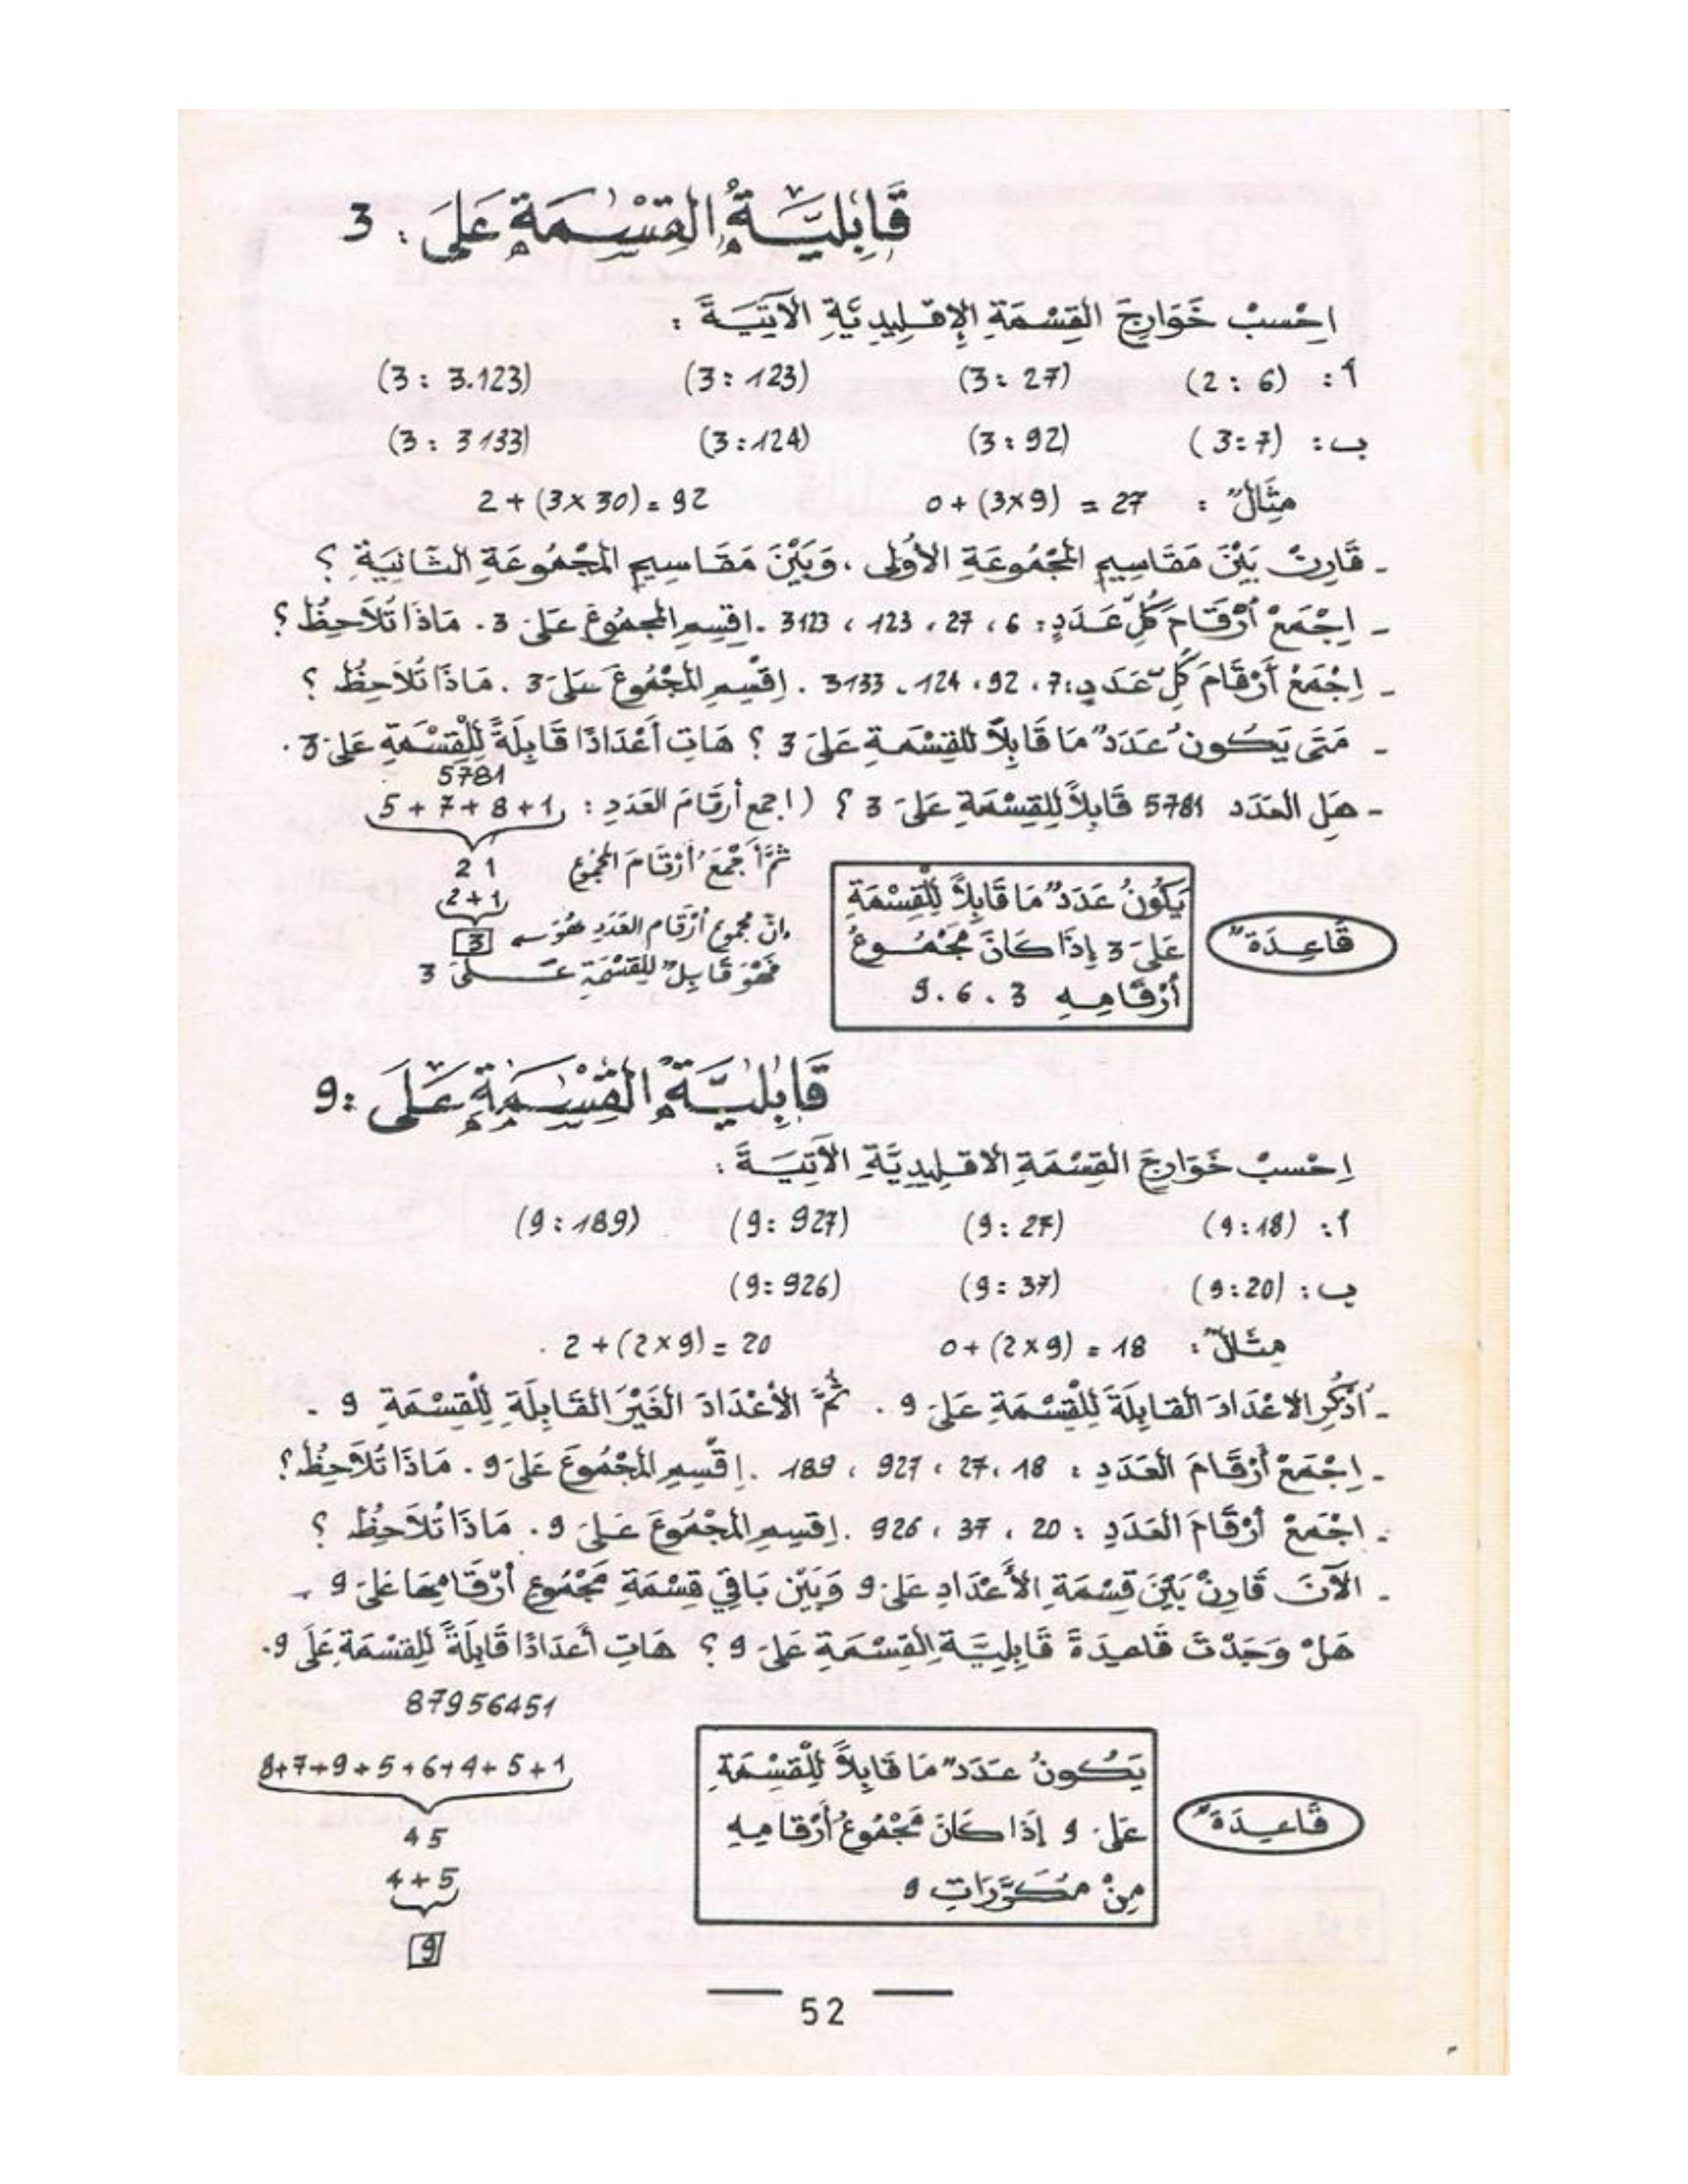 قَابِلِيَّةُ القِسْمَةِ عَلَى : 3
اِحْسبْ خَوَارِجَ القِسْمَةِ الإِقْلِيدِيَّةِ الآتِيَةَ :
أ : (6 : 2) (27 : 3) (123 : 3) (3.123 : 3)
ب : (7 : 3) (92 : 3) (124 : 3) (3133 : 3)
مِثَالٌ : 27 = (3×9) + 0 92 = (3×30) + 2
- قَارِنْ بَيْنَ مَقَاسِيمِ المَجْمُوعَةِ الأُولَى ، وَبَيْنَ مَقَاسِيمِ المَجْمُوعَةِ الثَّانِيَةِ ؟
- اِجْمَعْ أَرْقَامَ كُلِّ عَدَدٍ : 6 ، 27 ، 123 ، 3123 . اِقْسِمِ المجْمُوعَ عَلَى 3 . مَاذَا تُلاَحِظُ ؟
- اِجْمَعْ أَرْقَامَ كُلِّ عَدَدٍ : 7 ، 92 ، 124 ، 3133 . اِقْسِمِ المَجْمُوعَ عَلَى 3 . مَاذَا تُلاَحِظُ ؟
- مَتَى يَكُونُ عَدَدٌ مَا قَابِلاً للقِسْمَةِ عَلَى 3 ؟ هَاتِ أَعْدَادًا قَابِلَةً لِلْقِسْمَةِ عَلَى 3 .
5781
- هَلِ العَدَد 5781 قَابِلاً لِلقِسْمَةِ عَلَى 3 ؟ (اجمع أرقَامَ العَدَدِ : 5 + 7 + 8 + 1
ثُمَّ أَجْمَعَ أرْقَامَ المجْمُوع
21
2+1
إنّ مجموع أرْقَام العَدَدِ هُوَ 3
فَهْوَ قَابِلٌ لِلقِسْمَةِ عَلَى 3
قَاعِدَةٌ
يَكُونُ عَدَدٌ مَا قَابِلاً لِلْقِسْمَةِ
عَلَى 3 إِذَا كَانَ مَجْمُوعُ
أَرْقَامِهِ 3 . 6 . 9
قَابِلِيَّةُ القِسْمَةِ عَلَى : 9
اِحْسبْ خَوَارِجَ القِسْمَةِ الاقْلِيدِيَّةِ الآتِيَةَ :
أ : (18 : 9) (27 : 9) (927 : 9) (189 : 9)
ب : (20 : 9) (37 : 9) (926 : 9)
مِثَالٌ : 18 = (2×9) + 0 20 = (2×9) + 2 .
- أُذْكُرِ الاعْدَادَ القَابِلَةَ لِلْقِسْمَةِ عَلَى 9 . ثُمَّ الأَعْدَادَ الغَيْرَ القَابِلَةِ لِلْقِسْمَةِ 9 .
- اِجْمَعْ أَرْقَامَ العَدَدِ : 18 ، 27 ، 927 ، 189 . اِقْسِمِ المَجْمُوعَ عَلَى 9 . مَاذَا تُلاَحِظُ ؟
- اجْمَعْ أَرْقَامَ العَدَدِ : 20 ، 37 ، 926 . اِقْسِمِ المَجْمُوعَ عَلَى 9 . مَاذَا تُلاَحِظُ ؟
- الآنَ قَارِنْ بَيْنَ قِسْمَةِ الأَعْدَادِ عَلَى 9 وَبَيْنَ بَاقِي قِسْمَةِ مَجْمُوعِ أَرْقَامِهَا عَلَى 9 .
هَلْ وَجَدْتَ قَاعِدَةَ قَابِلِيَّةِ القِسْمَةِ عَلَى 9 ؟ هَاتِ أَعدَادًا قَابِلَةً لِلقِسْمَةِ عَلَى 9 .
87956451
8+7+9+5+6+4+5+1
45
4+5
9
قَاعِدَةٌ
يَكُونُ عَدَدٌ مَا قَابِلاً لِلْقِسْمَةِ
عَلَى 9 إِذَا كَانَ مَجْمُوعُ أَرْقَامِهِ
مِنْ مُكَرَّرَاتِ 9
52